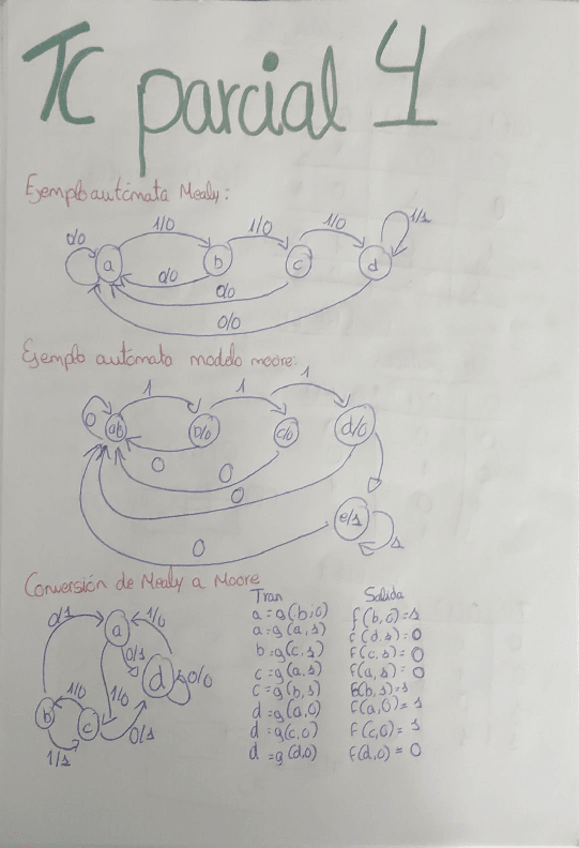 TC parcial 4
Ejemplo autómata Mealy:
0/0 1/0 1/0 1/0 1/1
a b c d
0/0 0/0
0/0
Ejemplo autómata modelo moore:
1 1 1
0 b/0 c/0 d/0
0 0
0
e/1
0 1
Conversión de Mealy a Moore
Tran Salida
a = g(b,0) f(b,0)=1
a = g(a,1) f(d,1)=0
b = g(c,1) f(c,1)=0
c = g(a,1) f(a,1)=0
c = g(b,1) f(b,1)=1
d = g(a,0) f(a,0)=1
d = g(c,0) f(c,0)=1
d = g(d,0) f(d,0)=0
0/1 a 1/0
0/1 d 0/0
b 1/0 c 1/0 0/1
1/1